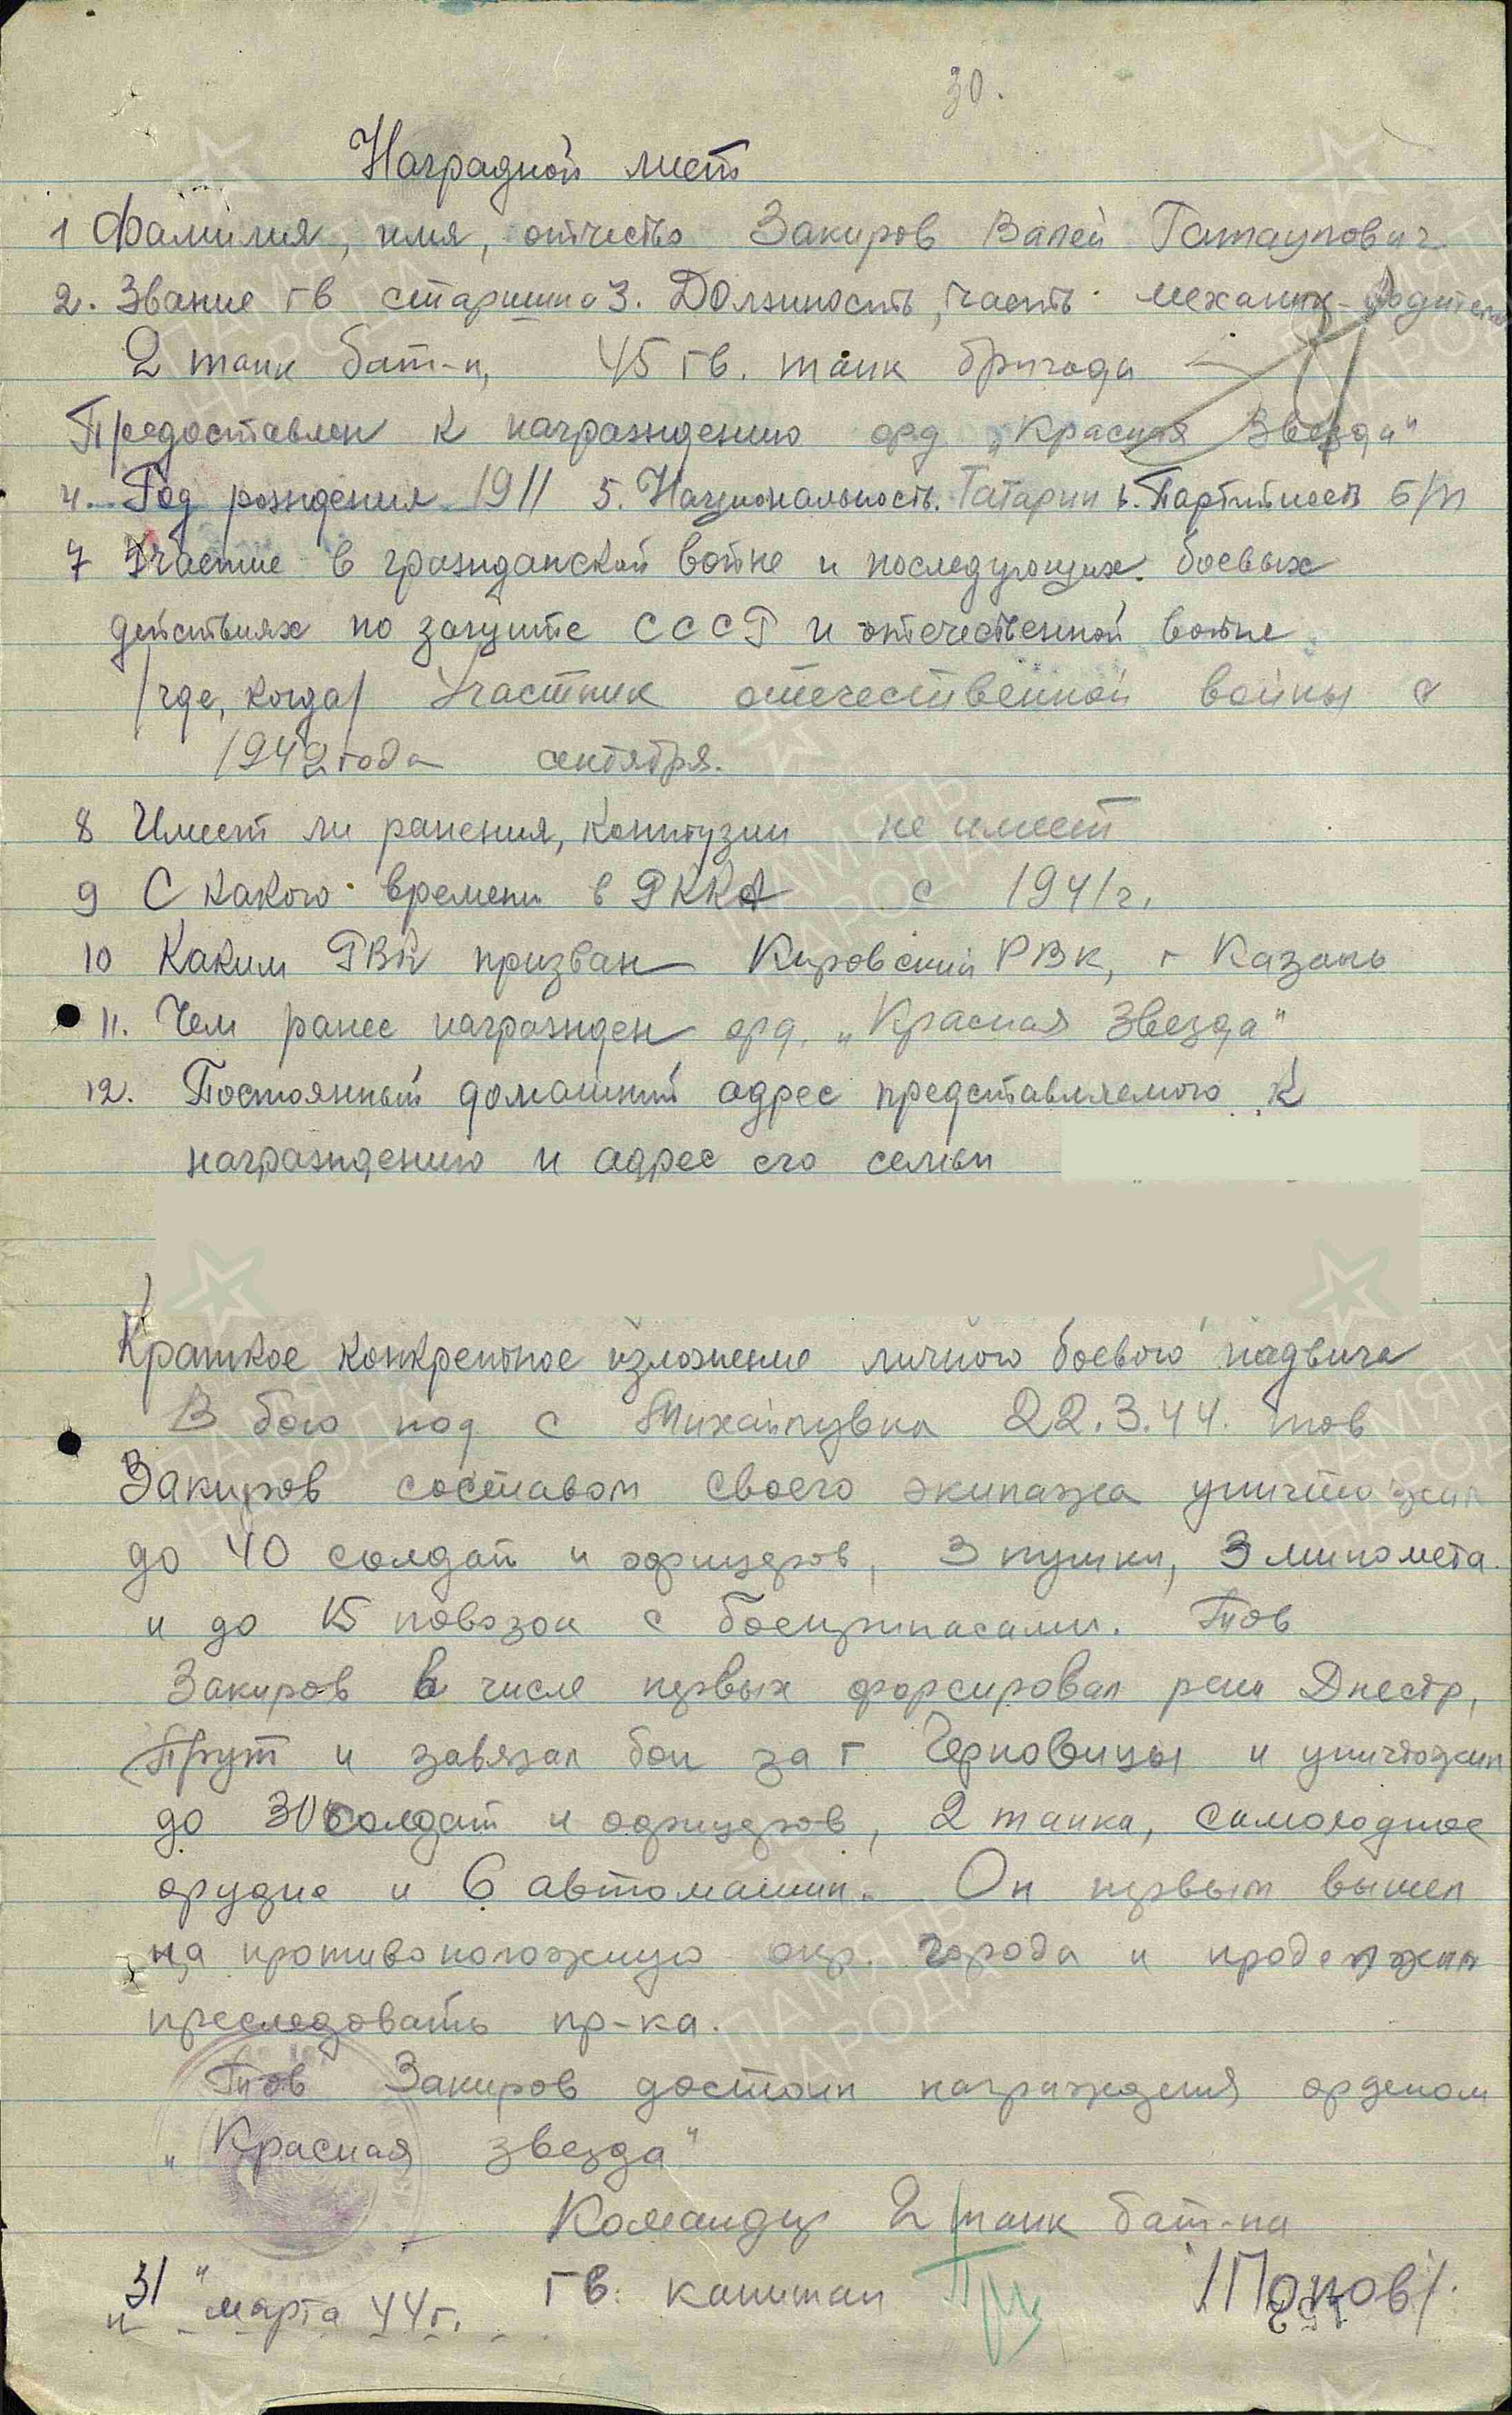 30.
Наградной лист
1 Фамилия, имя, отчество Закиров Валей Гатаупович
2. Звание гв старшина 3. Должность, часть механик-водитель
2 танк бат-н, 45 гв. танк бригада
Предоставлен к награждению орд „Красная Звезда"
4. Год рождения 1911 5. Национальность. Татарин 6. Партитность б/п
7 Участие в гражданской войне и последующих боевых
действиях по защите СССР и отечественной войне
/где, когда/ Участник отечественной войны с
1942 года сентября.
8 Имеет ли ранения, контузии не имеет
9 С какого времени в РККА с 1941 г.
10 Каким РВК призван Кировский РВК, г Казань
11. Чем ранее награжден орд. „Красная Звезда"
12. Постоянный домашний адрес представляемого к
награждению и адрес его семьи
Краткое конкретное изложение личного боевого подвига
В бою под с 22.3.44. тов
Закиров составом своего экипажа уничтожил
до 40 солдат и офицеров, 3 пушки, 3 миномета
и до 15 повозок с боеприпасами. Тов
Закиров в числе первых форсировал реки Днестр,
Прут и завязал бои за г Черновицы и уничтожил
до 30 солдат и офицеров, 2 танка, самоходное
орудие и 6 автомашин. Он первым вышел
на противоположную окр. города и продолжил
преследовать пр-ка.
Тов Закиров достоин награждения орденом
„Красная звезда"
Командир 2 танк бат-на
„31" марта 44 г. Гв. капитан /Попов/.
ПАМЯТЬ НАРОДА